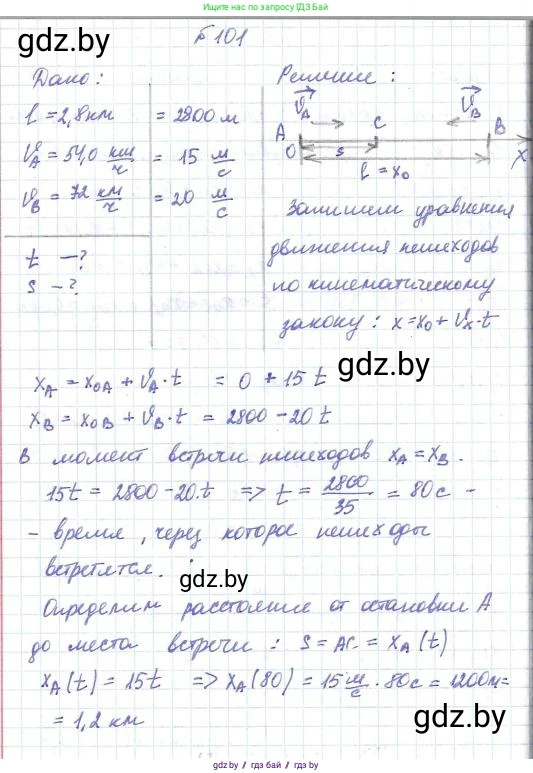 Ищите нас по запросу ГДЗ Бай
gdz.by
№101
Дано:
l = 2,8 км = 2800 м
V_A = 54,0 км/ч = 15 м/с
V_B = 72 км/ч = 20 м/с
t — ?
s — ?
Решение:
V_A V_B
A C B
O s X
l = x₀
Запишем уравнения
движения пешеходов
по кинематическому
закону: x = x₀ + Vₓ·t
gdz.by
x_A = x_0A + V_A·t = 0 + 15 t
x_B = x_0B + V_B·t = 2800 - 20 t
В момент встречи пешеходов x_A = x_B.
15t = 2800 - 20·t => t = 2800/35 = 80 с -
- время, через которое пешеходы
встретятся.
gdz.by
Определим расстояние от остановки А
до места встречи: s = AC = x_A(t)
x_A(t) = 15t => x_A(80) = 15 м/с · 80 с = 1200 м =
= 1,2 км
gdz.by
gdz.by / гдз бай / gdz bai